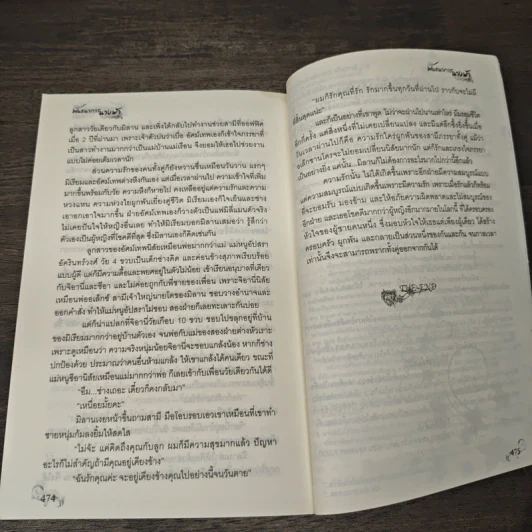 ลูกสาววัยเดียวกับมิลาน และเพิ่งได้กลับไปทำงานช่วยสามีที่ออฟฟิต
เมื่อ 2 ปีที่ผ่านมา เพราะเจ้าตัวบ่นว่าเบื่อ อัคม์เทพเองก็เข้าใจภรรยาที่
เป็นสาวทำงานมากกว่าเป็นแม่บ้านแม่เรือน จึงยอมให้เธอไปช่วยงาน
แบบไม่ค่อยเต็มเวลานัก
ส่วนความรักของคนทั้งคู่ก็ยังหวานชื่นเหมือนวันวาน แรกๆ
มีเรียมและอัคม์เทพต่างหึงกันเอง แต่เมื่อเวลาผ่านไป ความเข้าใจที่เพิ่ม
มากขึ้นพร้อมกับวัย ความหึงก็หายไป คงเหลืออยู่แต่ความรักและความ
หวงแหน ความห่วงใยผูกพันเยี่ยงคู่ชีวิต มีเรียมเองก็ใจเย็นและช่าง
เอาอกเอาใจมากขึ้น ฝ่ายอัคม์เทพเองก็วางตัวเป็นแม่พิมพ์แมนตัวจริง
ไม่เคยปันใจให้หญิงอื่นเลย ทำให้มีเรียมบอกมิลานเสมอว่า รู้สึกว่า
ตัวเองเป็นผู้หญิงที่โชคดีที่สุด ซึ่งมิลานเองก็คิดเช่นกัน
ลูกสาวของอัคม์เทพนิสัยเหมือนพ่อมากกว่าแม่ แม่หนูอัปสรา
วัย 4 ขวบเป็นเด็กช่างคิด และค่อนข้างสุภาพเรียบร้อย
แบบผู้ดี แต่ก็มีความดื้อและพยศอยู่ในตัวไม่น้อย เข้าเรียนอนุบาลที่เดียว
กับจิอานี่และชีอา และไม่ค่อยถูกกับพี่ชายของเพื่อน เพราะจิอานี่นิสัย
เหมือนพ่อเล็กซ์ สามีเจ้าใหญ่นายโตของมิลาน ชอบวางอำนาจและ
ออกคำสั่ง ทำให้แม่หนูอัปสราไม่ชอบ สองฝ่ายก็เลยทะเลาะกันบ่อย
แต่ก็น่าแปลกที่จิอานี่วัยเกือบ 10 ขวบ ชอบไปขลุกอยู่ที่บ้าน
ของมีเรียมมากกว่าอยู่บ้านตัวเอง จนพ่อกับแม่ของสองฝ่ายต่างหัวเราะ
เพราะดูเหมือนว่า ความจริงหนุ่มน้อยจิอานี่จะชอบแกล้งน้อง หากก็ช่าง
ปกป้องด้วย ประมาณว่าคนอื่นห้ามแกล้ง ให้เขาแกล้งได้คนเดียว ขณะที่
แม่หนูชีอานิสัยเหมือนแม่มากกว่าพ่อ ก็เลยเข้ากับเพื่อนวัยเดียวกันได้ดี
“อืม...ช่างเถอะ เดี๋ยวก็คงกลับมา”
“เหนื่อยมั้ยคะ”
มิลานเงยหน้าขึ้นถามสามี มือโอบรอบเอวเขาเหมือนที่เขาทำ
ชายหนุ่มก้มลงยิ้มให้สดใส
“ไม่จ้ะ แค่คิดถึงคุณกับลูก ผมก็มีความสุขมากแล้ว ปัญหา
อะไรก็ไม่สำคัญถ้ามีคุณอยู่เคียงข้าง”
“ฉันรักคุณค่ะ จะอยู่เคียงข้างคุณไปอย่างนี้จนวันตาย”
474
“ผมก็รักคุณที่รัก รักมากขึ้นทุกวันที่ผ่านไป ราวกับจะไม่มี
และก็เป็นอย่างที่เขาพูด ไม่ว่าจะผ่านไปนานเท่าไหร่
อีกกี่ครั้ง แต่สิ่งหนึ่งที่ไม่เคยเปลี่ยนแปลง และมีแต่ลึกซึ้งยิ่งขึ้นเมื่อ
วันเวลาผ่านไปก็คือ ความรักใคร่ผูกพันของสามีภรรยาทั้งคู่ แม้ว่า
ไม่ยอมเปลี่ยนนิสัยมากนัก แต่ก็รักและเกรงใจภรรยา
เป็นอย่างยิ่ง แค่นั้น...มิลานก็ไม่ต้องการอะไรมากไปกว่านี้อีกแล้ว
ความรักนั้น ไม่ได้เกิดขึ้นเพราะอีกฝ่ายมีความสมบูรณ์แบบ
แต่ความสมบูรณ์แบบเกิดขึ้นเพราะมีความรัก เพราะเมื่อรักแล้วก็พร้อม
ที่จะยอมรับ มองข้าม และให้อภัยความผิดพลาดและไม่สมบูรณ์ของ
อีกฝ่าย และเธอโชคดีมากกว่าผู้หญิงอีกมากมายในโลกนี้ ที่ได้ครอบครอง
หัวใจของผู้ชายคนหนึ่ง ซึ่งมอบหัวใจให้เธอแต่เพียงผู้เดียว ได้สร้าง
ครอบครัว ผูกพัน และกลายเป็นส่วนหนึ่งของกันและกัน จนกาลเวลา
เท่านั้นจึงจะสามารถพรากทั้งคู่ออกจากกันได้
THE END
475